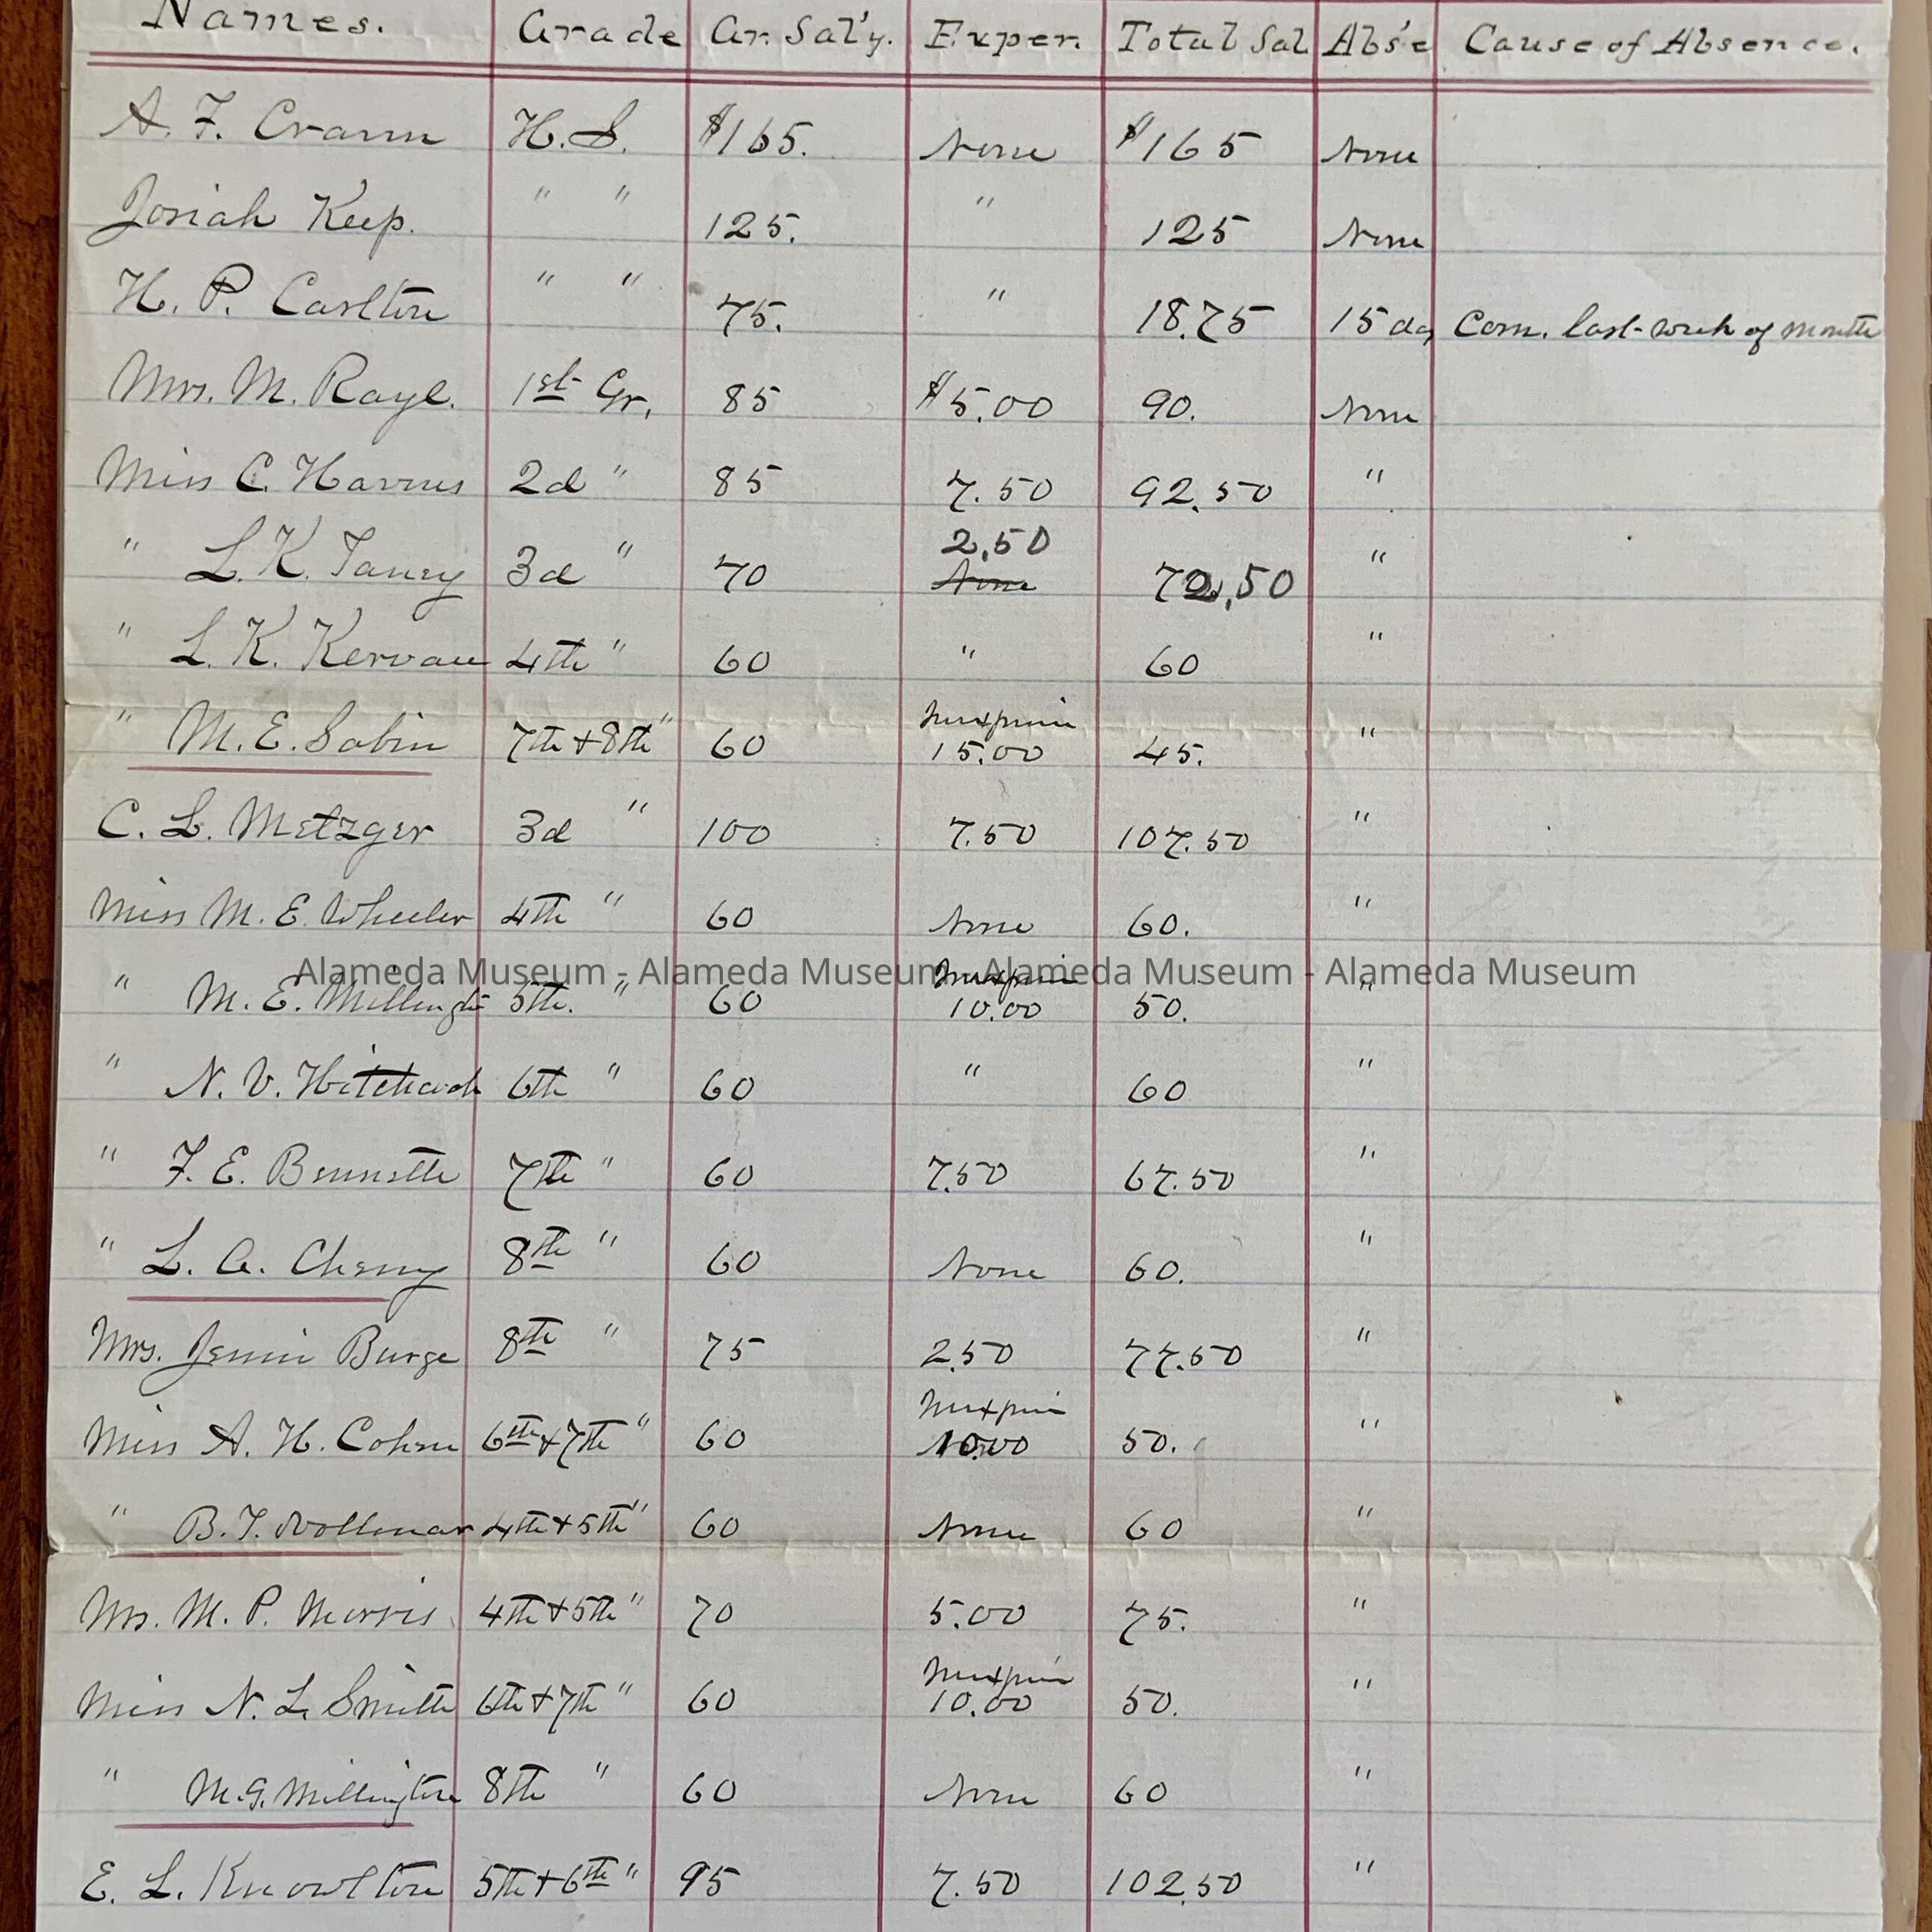 Names. Grade Gr. Sal'y. Exper. Total Sal Abs'e Cause of Absence.
A. F. Craven H.S. $165. None $165 None
Josiah Keep. " " 125. " 125 None
H. P. Carlton " " 75. " 18.75 15 da, Com. last week of month
Mrs. M. Rayl. 1st Gr. 85 $5.00 90. None
Miss C. 2d " 85 7.50 92.50 "
" L. K. 3d " 70 2.50 None 72.50 "
" L. K. 4th " 60 " 60 "
" M. E. Sabin 7th + 8th " 60 Inexperi 15.00 45. "
C. L. Metzger 3d " 100 7.50 107.50 "
Miss M. E. Wheeler 4th " 60 None 60. "
Alameda Museum - Alameda Museum - Alameda Museum - Alameda Museum
" M. E. Millingt 5th. " 60 Inexperi 10.00 50. "
" N. V. 6th " 60 " 60 "
" F. E. 7th " 60 7.50 67.50 "
" L. A. Cheny 8th " 60 None 60. "
Mrs. Jennie Burge 8th " 75 2.50 77.50 "
Miss A. H. Cohen 6th + 7th " 60 Inexperi 10.00 50. "
" B. T. 4th + 5th " 60 None 60 "
Mrs. M. P. Morris 4th + 5th " 70 5.00 75. "
Miss N. L. Smith 6th + 7th " 60 Inexperi 10.00 50. "
" M. G. Millington 8th " 60 None 60 "
E. L. Knowlton 5th + 6th " 95 7.50 102.50 "